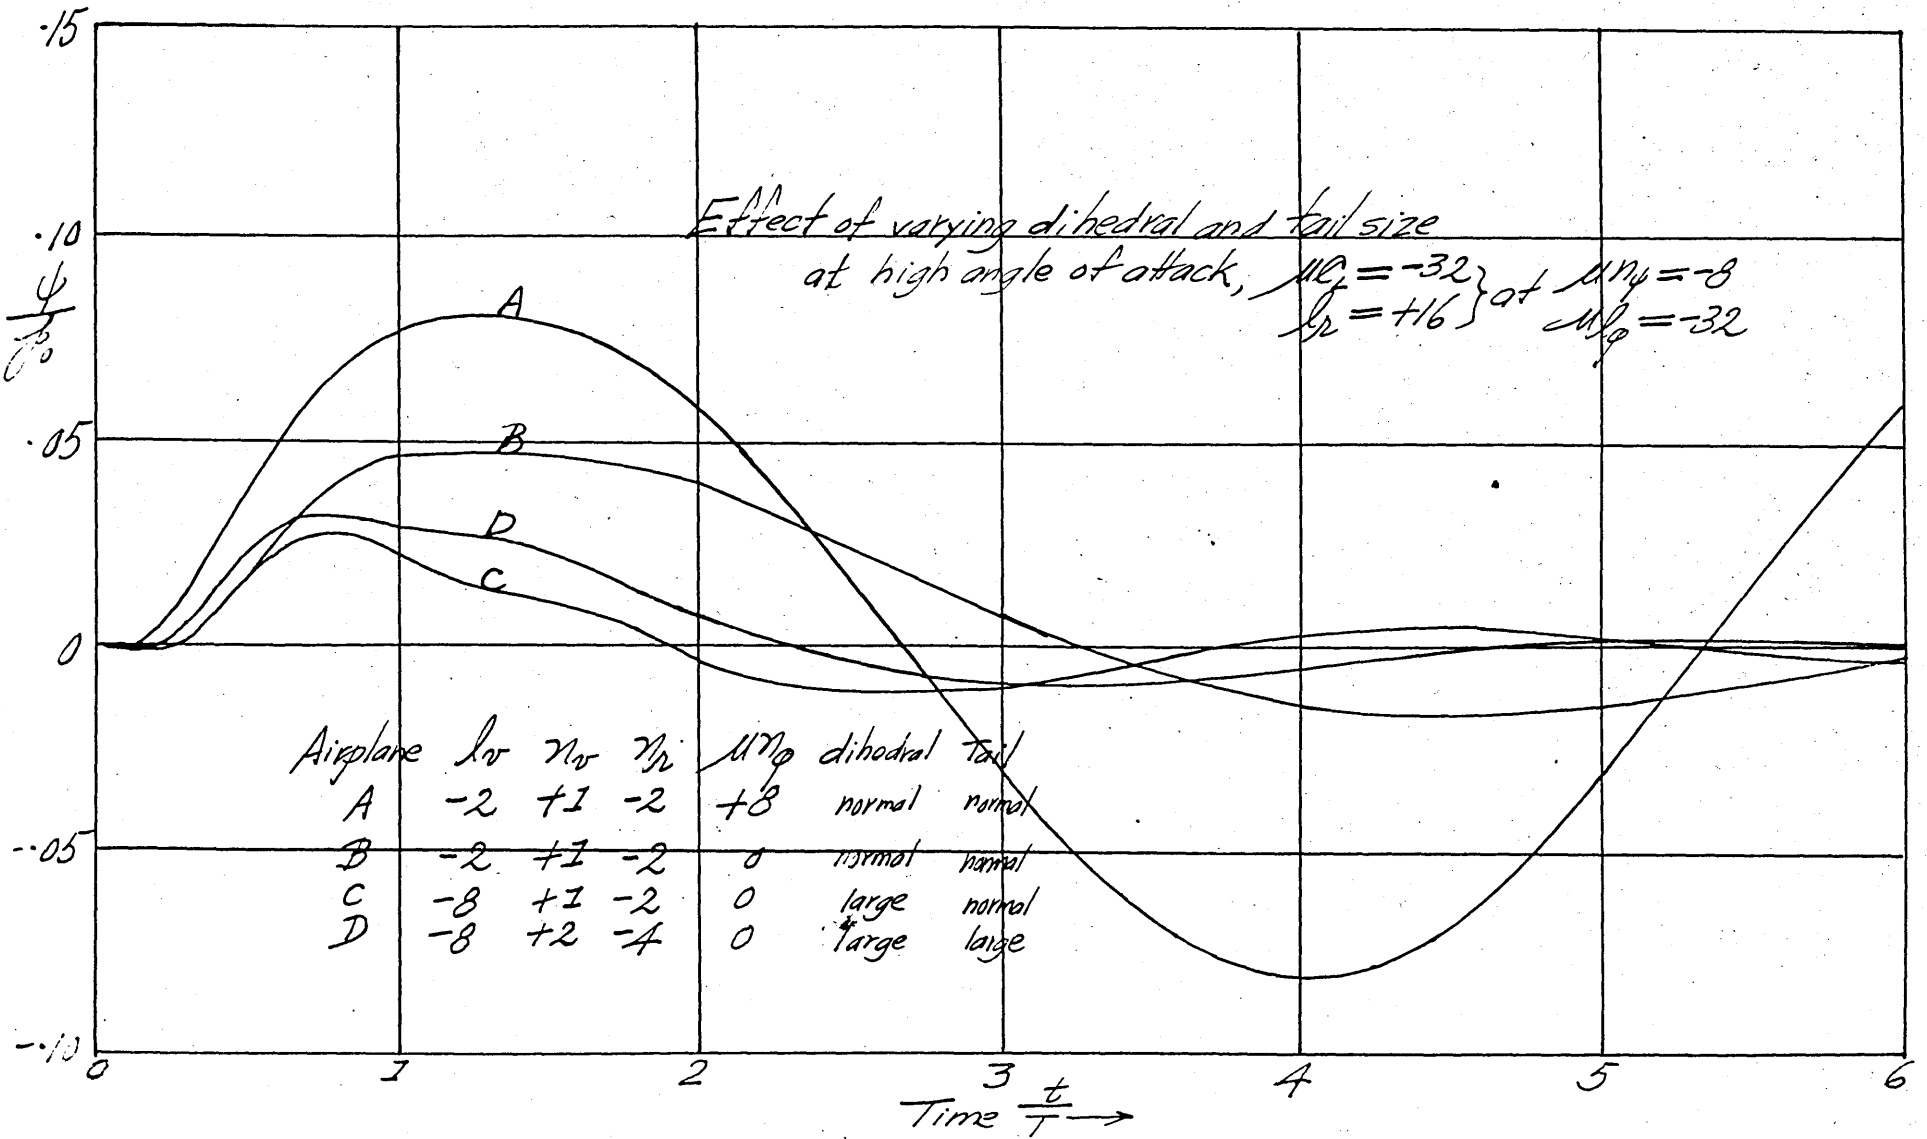 .15
.10
.05
0
-.05
-.10
ψ
p₀
Effect of varying dihedral and tail size
at high angle of attack, μC_L = -32 } at μn_ψ = -8
l_r = +16 μl_φ = -32
A
B
D
C
Airplane l_v n_v n_r μn_φ dihedral tail
A -2 +1 -2 +8 normal normal
B -2 +1 -2 0 normal normal
C -8 +1 -2 0 large normal
D -8 +2 -4 0 large large
0 1 2 3 4 5 6
Time t/T →